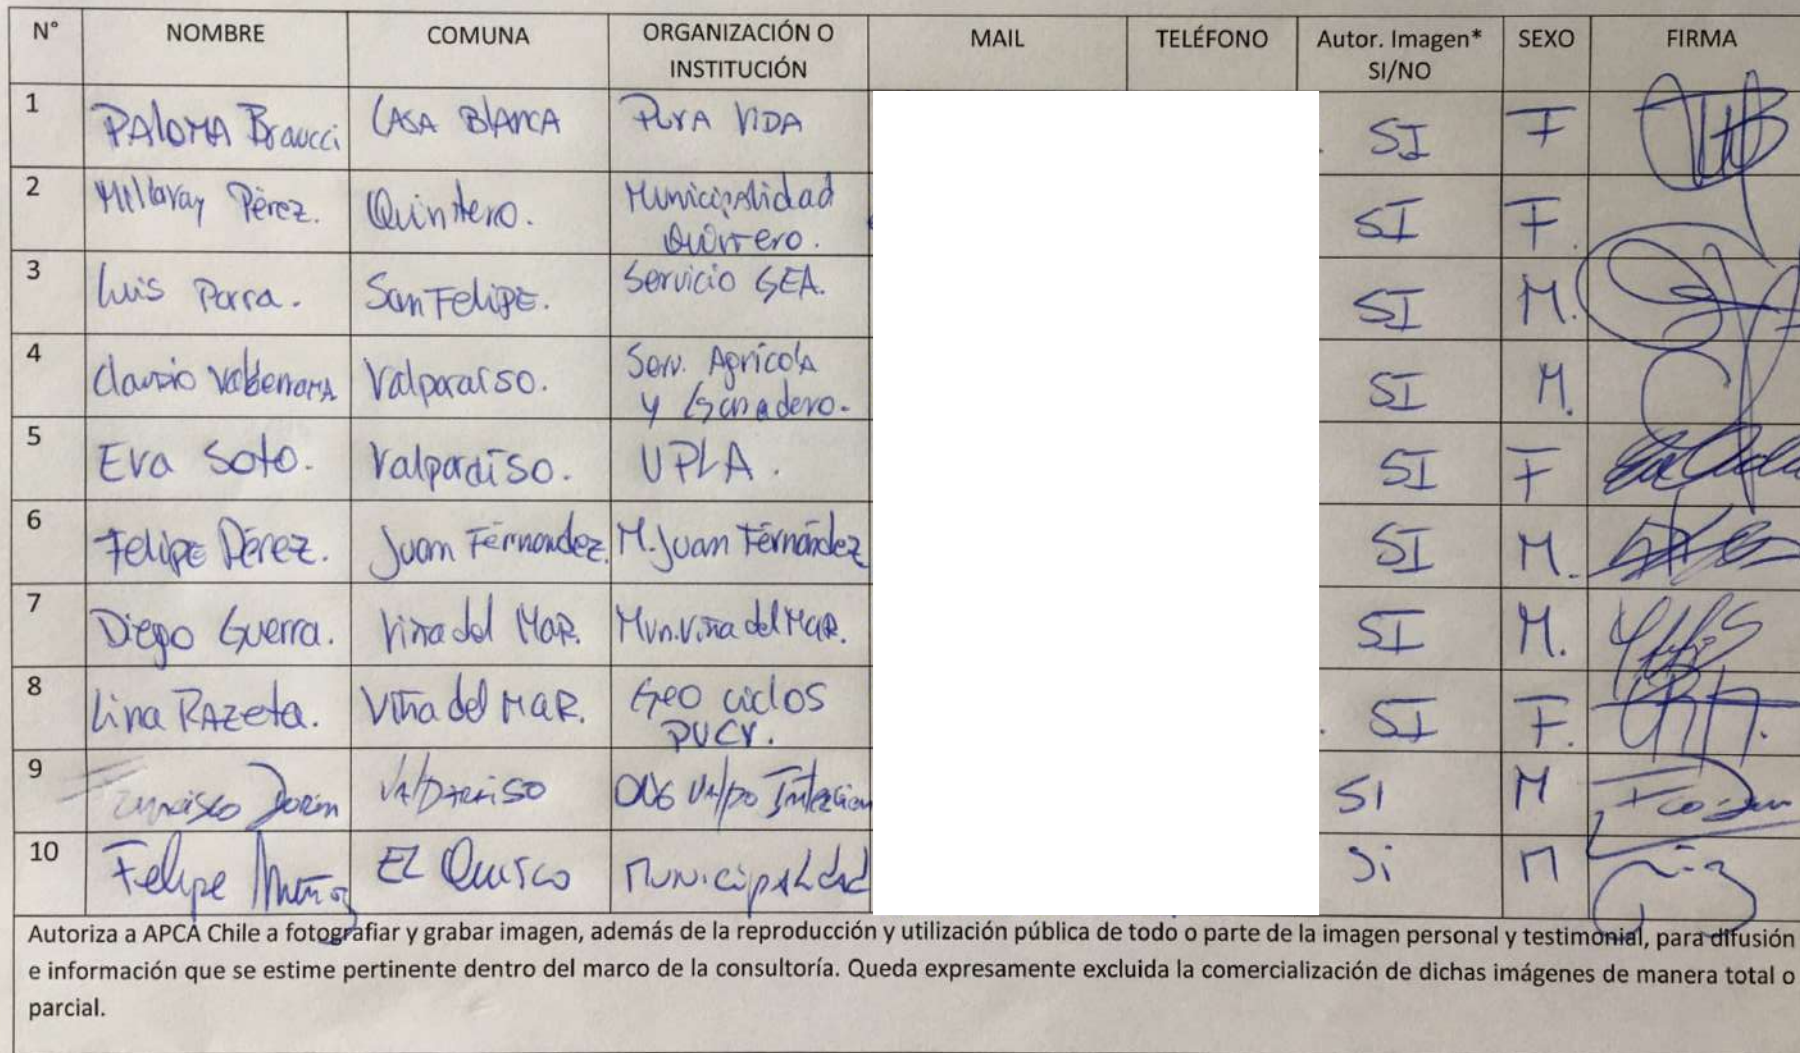 N° NOMBRE COMUNA ORGANIZACIÓN O INSTITUCIÓN MAIL TELÉFONO Autor. Imagen* SI/NO SEXO FIRMA
1 PALOMA Braucci CASA BLANCA PURA VIDA SI F
2 Millaray Pérez. Quintero. Municipalidad Quintero. SI F.
3 Luis Parra. San Felipe. Servicio SEA. SI M.
4 Claudio Valderrama Valparaíso. Serv. Agrícola y Ganadero. SI M.
5 Eva Soto. Valparaíso. UPLA. SI F
6 Felipe Pérez. Juan Férnandez. M. Juan Férnández SI M.
7 Diego Guerra. Viña del Mar. Mun. Viña del Mar. SI M.
8 Lina Razeta. Viña del Mar. Geo ciclos PUCV. SI F.
9 Francisco Valparaiso Valpo SI M
10 Felipe Muñoz EL Quisco Municipalidad Si M
Autoriza a APCA Chile a fotografiar y grabar imagen, además de la reproducción y utilización pública de todo o parte de la imagen personal y testimonial, para difusión
e información que se estime pertinente dentro del marco de la consultoría. Queda expresamente excluida la comercialización de dichas imágenes de manera total o
parcial.